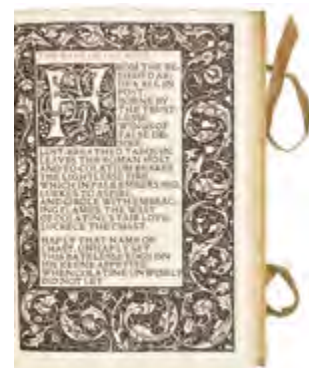 FROM THE BE-
SIEGED AR-
DEA ALL IN
POST,
BORNE BY
THE TRUST-
LESSE
WINGS OF
FALSE DE-
SIRE,
LUST-BREATHED TARQUIN,
LEAVES THE ROMAN HOST,
AND TO COLATIUM BEARES
THE LIGHTLESSE FIRE,
WHICH IN PALE EMBERS HID,
LURKES TO ASPIRE,
AND GIRDLE WITH EMBRAC-
ING FLAMES, THE WAST
OF COLATINE'S FAIR LOVE,
LUCRECE THE CHAST.
HAPLY THAT NAME OF
CHAST, UNHAPLY SET
THIS BATELESSE EDGE ON
HIS KEENE APPETITE:
WHEN COLATINE UNWISELY
DID NOT LET